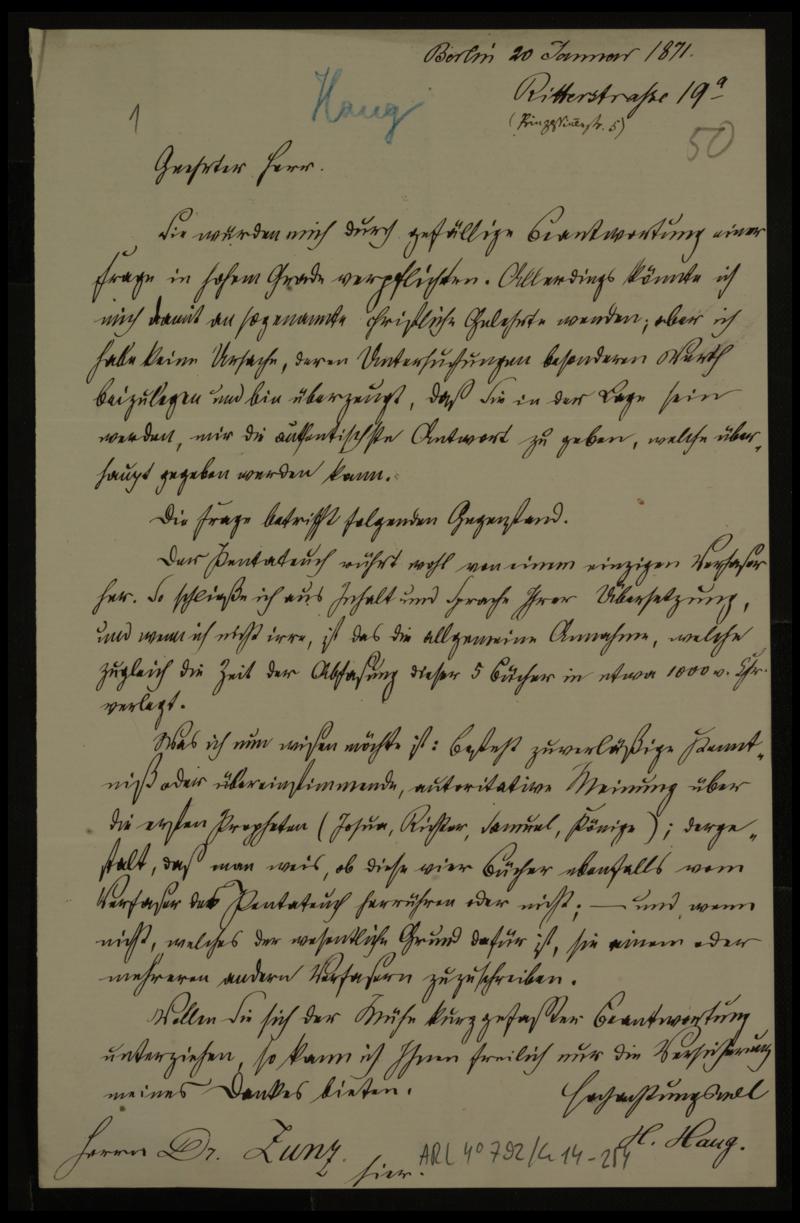 Berlin 20 Januar 1871.
Ritterstraße 19a
(Prinzessinenstr. 5)
Haug
1
50
Geehrter Herr.
Sie würden mich durch gefällige Beantwortung einer
Frage in hohem Grade verpflichten. Allerdings könnte ich
mich damit an sogenannte christliche Gelehrte wenden; aber ich
habe keine Ursache, deren Untersuchungen besonderen Werth
beizulegen und bin überzeugt, daß Sie in der Lage sein
werden, mir die authentischste Antwort zu geben, welche über-
haupt gegeben werden kann.
Die Frage betrifft folgenden Gegenstand.
Der Pentateuch rührt wohl von einem einzigen Verfasser
her. So schließe ich aus Inhalt und Sprache Ihrer Übersetzung,
und wenn ich nicht irre, ist das die allgemeine Annahme, welche
zugleich die Zeit der Abfassung dieser 5 Bücher in etwa 1000 v. Chr.
verlegt.
Was ich nun wissen möchte ist: besteht zuverläßige Kennt-
niß oder übereinstimmende, autoritative Meinung über
die ersten Propheten (Josua, Richter, Samuel, Könige); derge-
stalt, daß man weis, ob diese vier Bücher ebenfalls vom
Verfasser des Pentateuch herrühren oder nicht; — und wenn
nicht, welches der wesentliche Grund dafür ist, sie einem oder
mehreren andern Verfassern zuzuschreiben.
Wollen Sie sich der Mühe kurzgefaßter Beantwortung
unterziehen, so kann ich Ihnen freilich nur die Versicherung
meines Dankes bieten.
Hochachtungsvoll
H. Haug.
Herrn Dr. Zunz.
hier.
ARC 4° 792/G 14-254